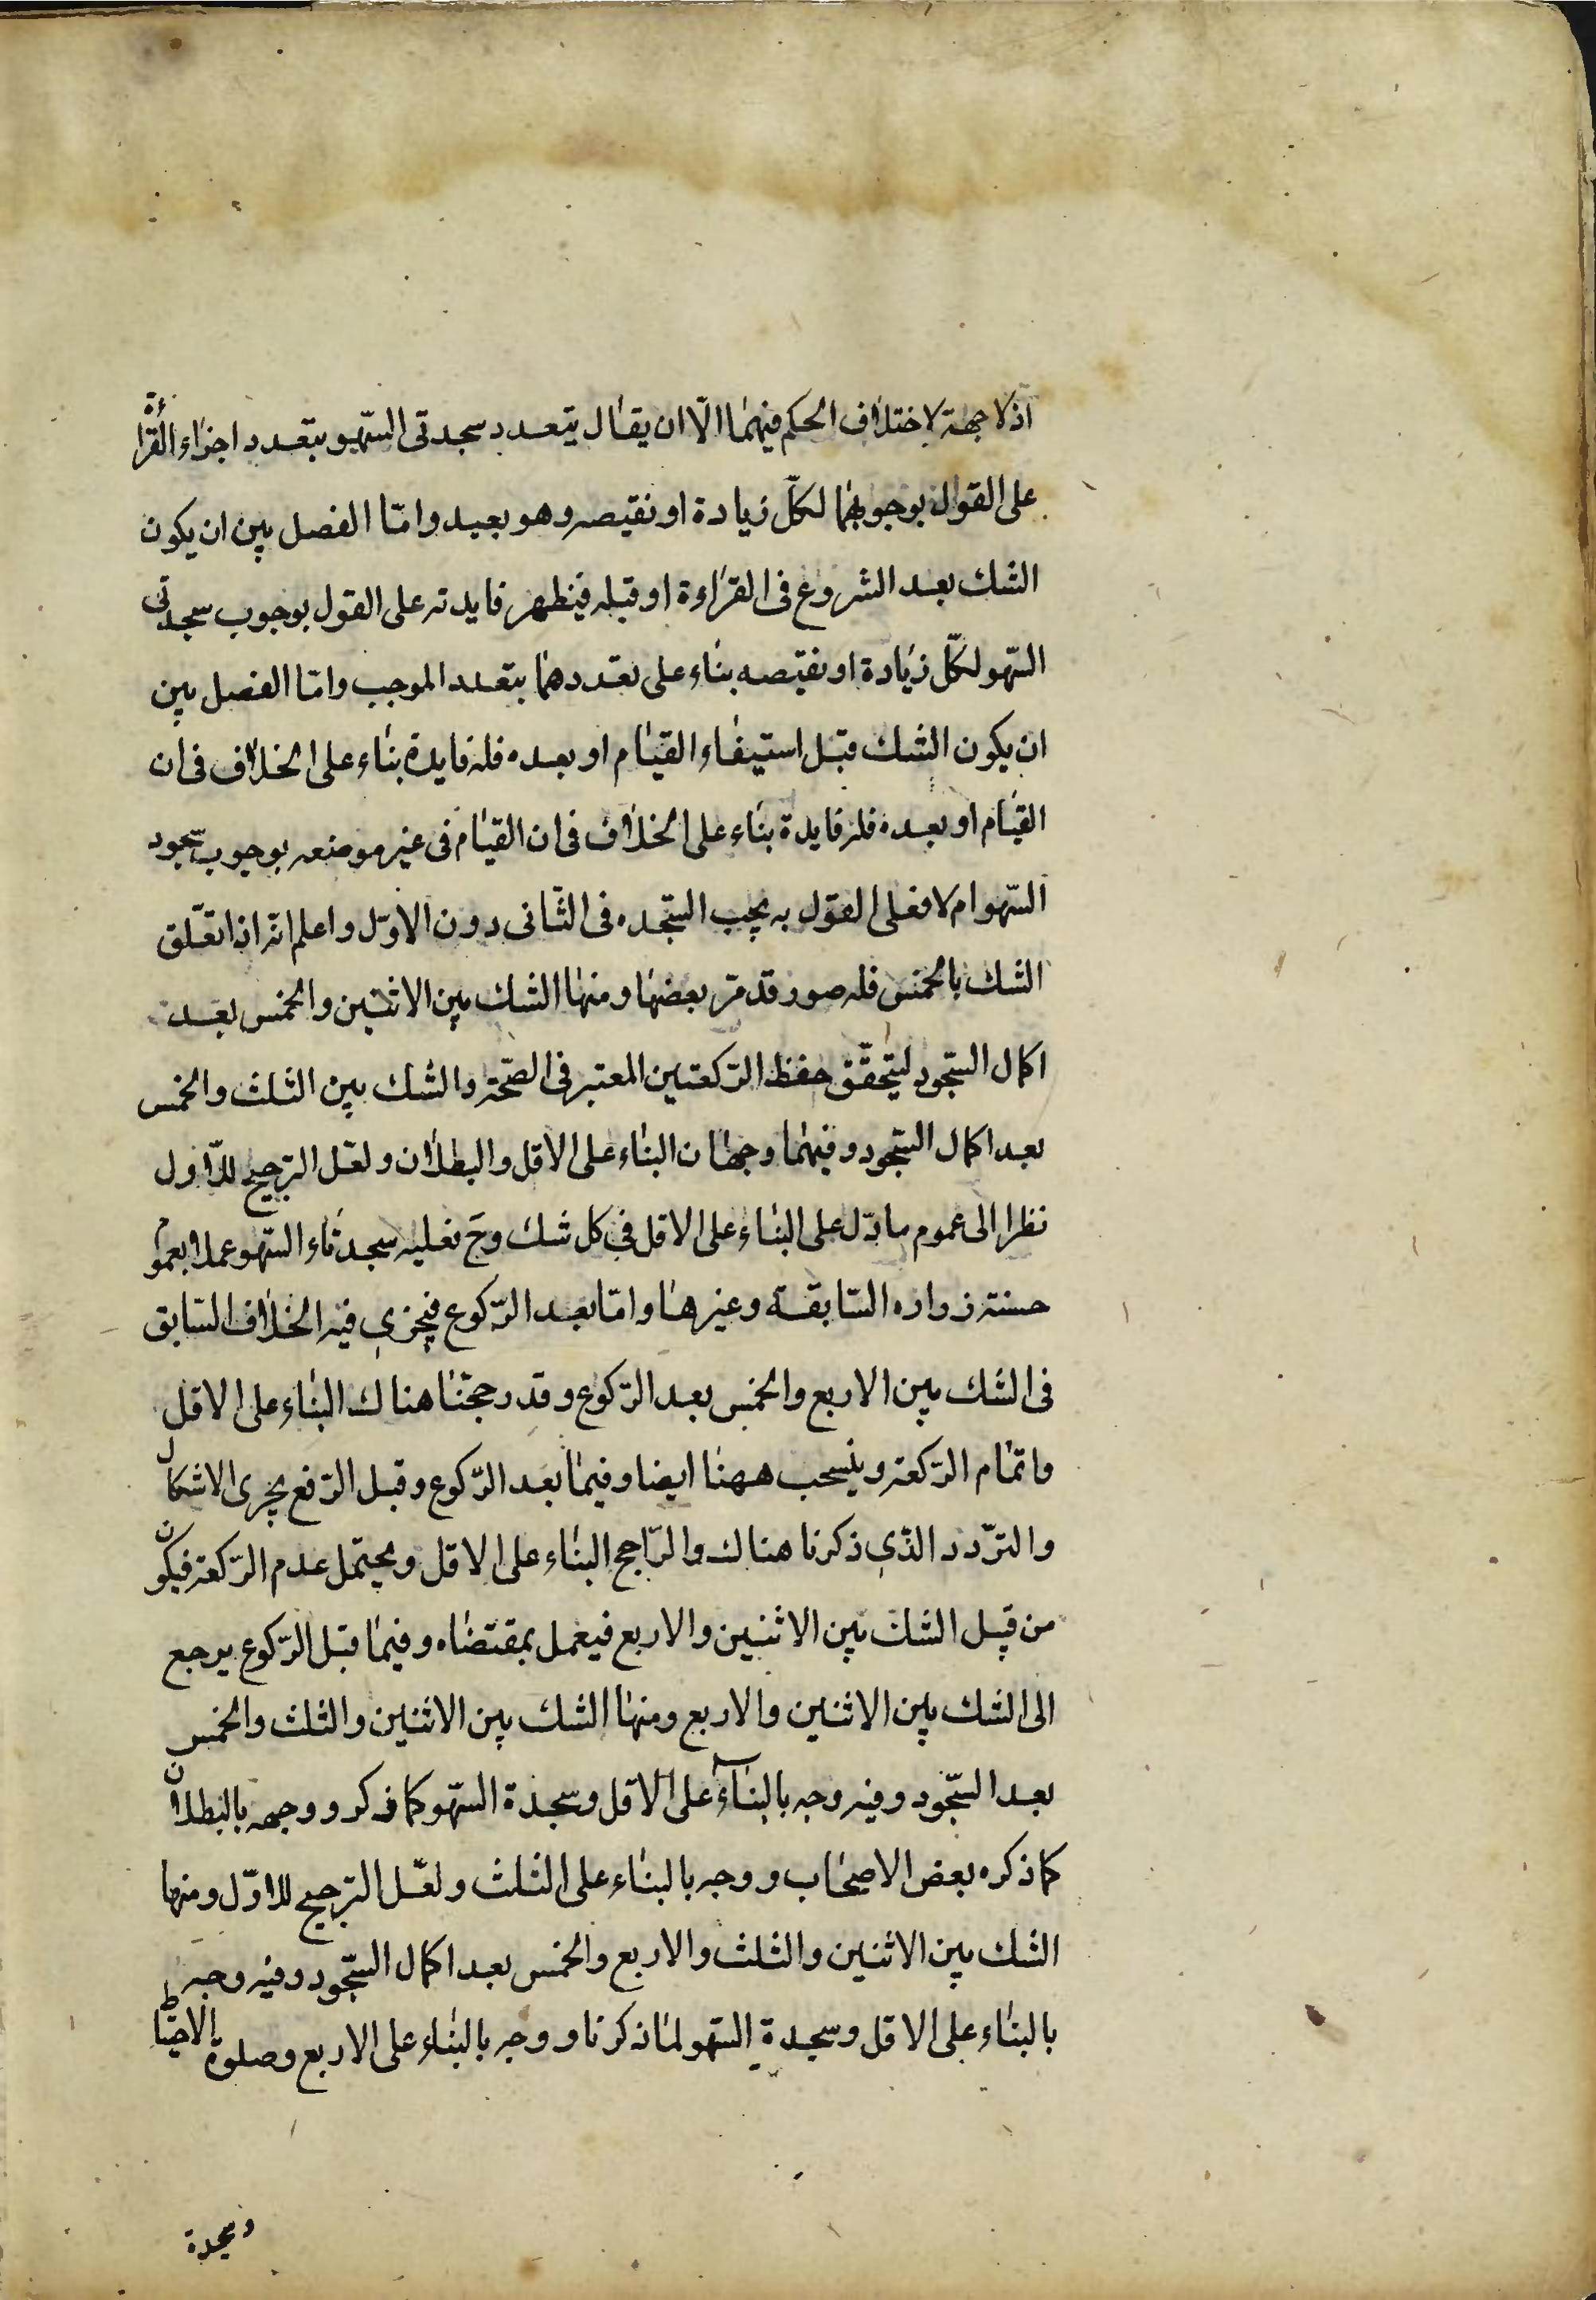 اذ لا جهة لاختلاف الحكم فيهما الّا ان يقال يتعدد سجدتى السّهو بتعدد اجزاء القراءة
على القول بوجوبهما لكلّ زيادة او نقيصه وهو بعيد وامّا الفصل بين ان يكون
الشك بعد الشروع فى القراءة او قبله فيظهر فايدته على القول بوجوب سجدتى
السّهو لكلّ زيادة او نقيصه بناء على تعددهما بتعدد الموجب وامّا الفصل بين
ان يكون الشك قبل استيفاء القيام او بعده فله فايدة بناء على الخلاف فى ان
القيام او بعده فله فايدة بناء على الخلاف فى ان القيام فى غير موضعه بوجوب سجود
السّهو ام لا فعلى القول به يجب السّجده فى الثانى دون الاوّل واعلم انّه اذا تعلّق
الشك بالخمس فله صور قد مرّ بعضها ومنها الشك بين الاثنين والخمس بعد
اكمال السّجود ليتحقّق حفظ الرّكعتين المعتبر فى الصّحّة والشك بين الثلث والخمس
بعد اكمال السّجود وفيهما وجهان البناء على الاقل والبطلان ولعل الترجيح للاول
نظرا الى عموم ما دلّ على البناء على الاقل فى كل شك وح فعليه سجدتاء السّهو عملا بعموم
حسنة زراره السّابقة وغيرها وامّا بعد الرّكوع فيجزى فيه الخلاف السّابق
فى الشك بين الاربع والخمس بعد الرّكوع وقد رجحّنا هناك البناء على الاقل
واتمام الرّكعة وينسحب ههنا ايضا وفيما بعد الرّكوع وقبل الرّفع يجرى الاشكال
والتردّد الذّى ذكرنا هناك والرّاجح البناء على الاقل ويحتمل عدم الرّكعة فيكون
من قبل الشك بين الاثنين والاربع فيعمل بمقتضاه وفيما قبل الرّكوع يرجع
الى الشك بين الاثنين والاربع ومنها الشك بين الاثنين والثلث والخمس
بعد السّجود وفيه وجه بالبناء على الاقل وسجدة السّهو كما ذكر ووجه بالبطلان
كما ذكره بعض الاصحاب ووجه بالبناء على الثلث ولعّل الترجيح للاوّل ومنها
الشك بين الاثنين والثلث والاربع والخمس بعد اكمال السّجود وفيه وجه
بالبناء على الاقل وسجدة السّهو لما ذكرنا ووجه بالبناء على الاربع وصلوة الاحتياط
وسجدة